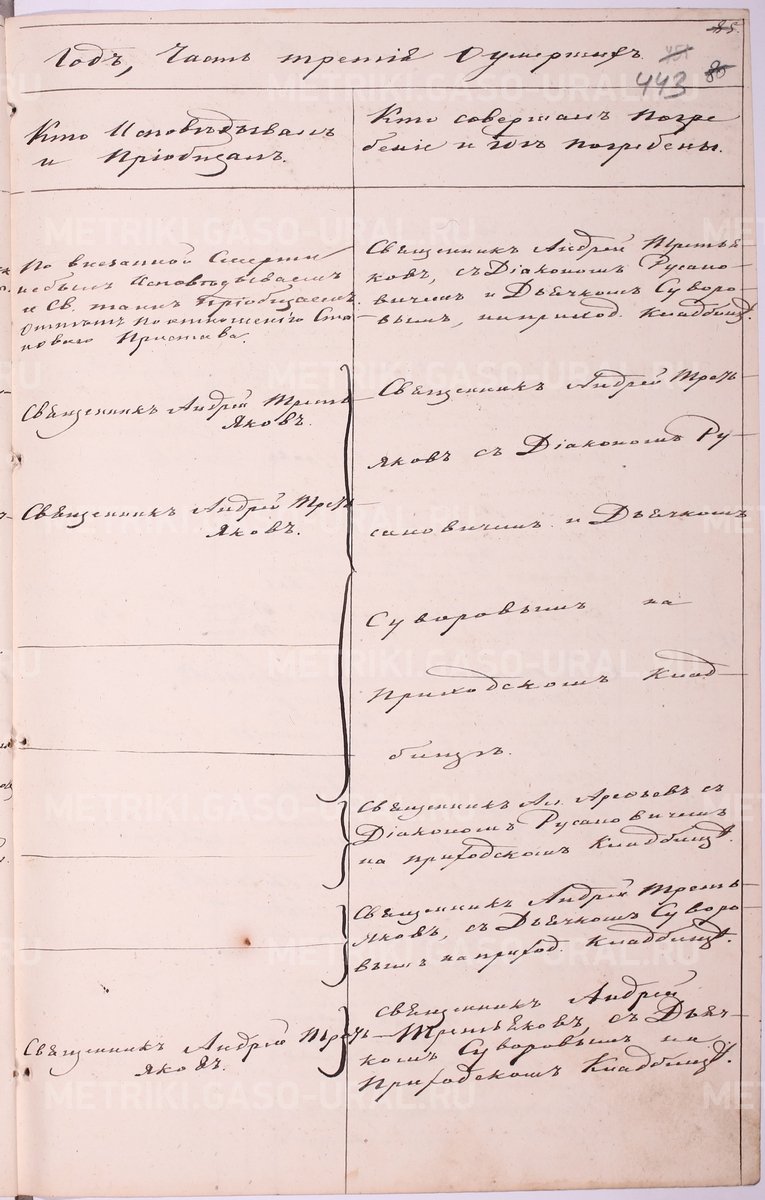 85.
Годъ, Часть третія О умершихъ.
451
443 86
Кто Исповѣдывалъ
и Пріобщалъ.
Кто совершалъ Погре
беніе и гдѣ погребены.
По внезапной Смерти
небылъ Исповѣдываемъ
и Св. таинъ Пріобщаемъ.
Отпѣтъ по отношенію Ста
новаго Пристава.
Священникъ Андрей Третья
ковъ, съ Діакономъ Русано
вичемъ и Дьячкомъ Суворо
вымъ, на приход. Кладбищѣ.
Священникъ Андрей Треть
яковъ.
Священникъ Андрей Треть
яковъ.
Священникъ Андрей Треть
яковъ съ Діакономъ Ру
сановичемъ и Дьячкомъ
Суворовымъ на
Приходскомъ Клад
бищѣ.
Священникъ Ал. Арефьевъ съ
Діакономъ Русановичемъ
на приходскомъ Кладбищѣ.
Священникъ Андрей Треть
яковъ, съ Дьячкомъ Суворо
вымъ на приход. Кладбищѣ.
Священникъ Андрей Треть
яковъ.
Священникъ Андрей
Третьяковъ, съ Дьяч
комъ Суворовымъ на
Приходскомъ Кладбищѣ.
METRIKI.GASO-URAL.RU